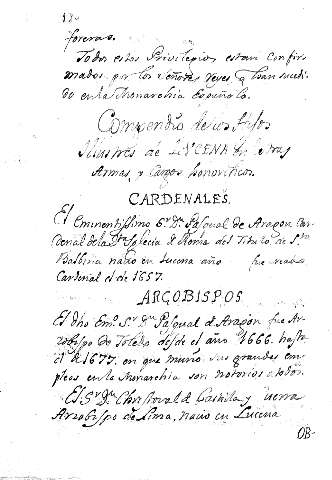 foreras.
Todos estos Privilegios estan confir
mados por los señores reyes, q han sucedi
do en la Monarchia Española.
Compendio de sus Hijos
Illustres de LUCENA en letras
Armas y Cargos honorificos.
CARDENALES.
El Eminentissimo Sr. Dn Pasqual de Aragon Car-
denal de la Sta Iglesia d Roma del Titulo de Sta
Balbina nacio en Lucena año fue
Cardenal el d 1657.
ARÇOBISPOS
El dho Emo. Sr. Dn Pasqual d Aragon fue Ar-
zobispo de Toledo desde el año 1666. hasta
el d 1677. en que murio sus grandes em-
pleos en la Monarchia son notorios a todos.
El Sr. Dn. Christoval d Castilla y
Arzobispo de Lima, nacio en Lucena
OB-